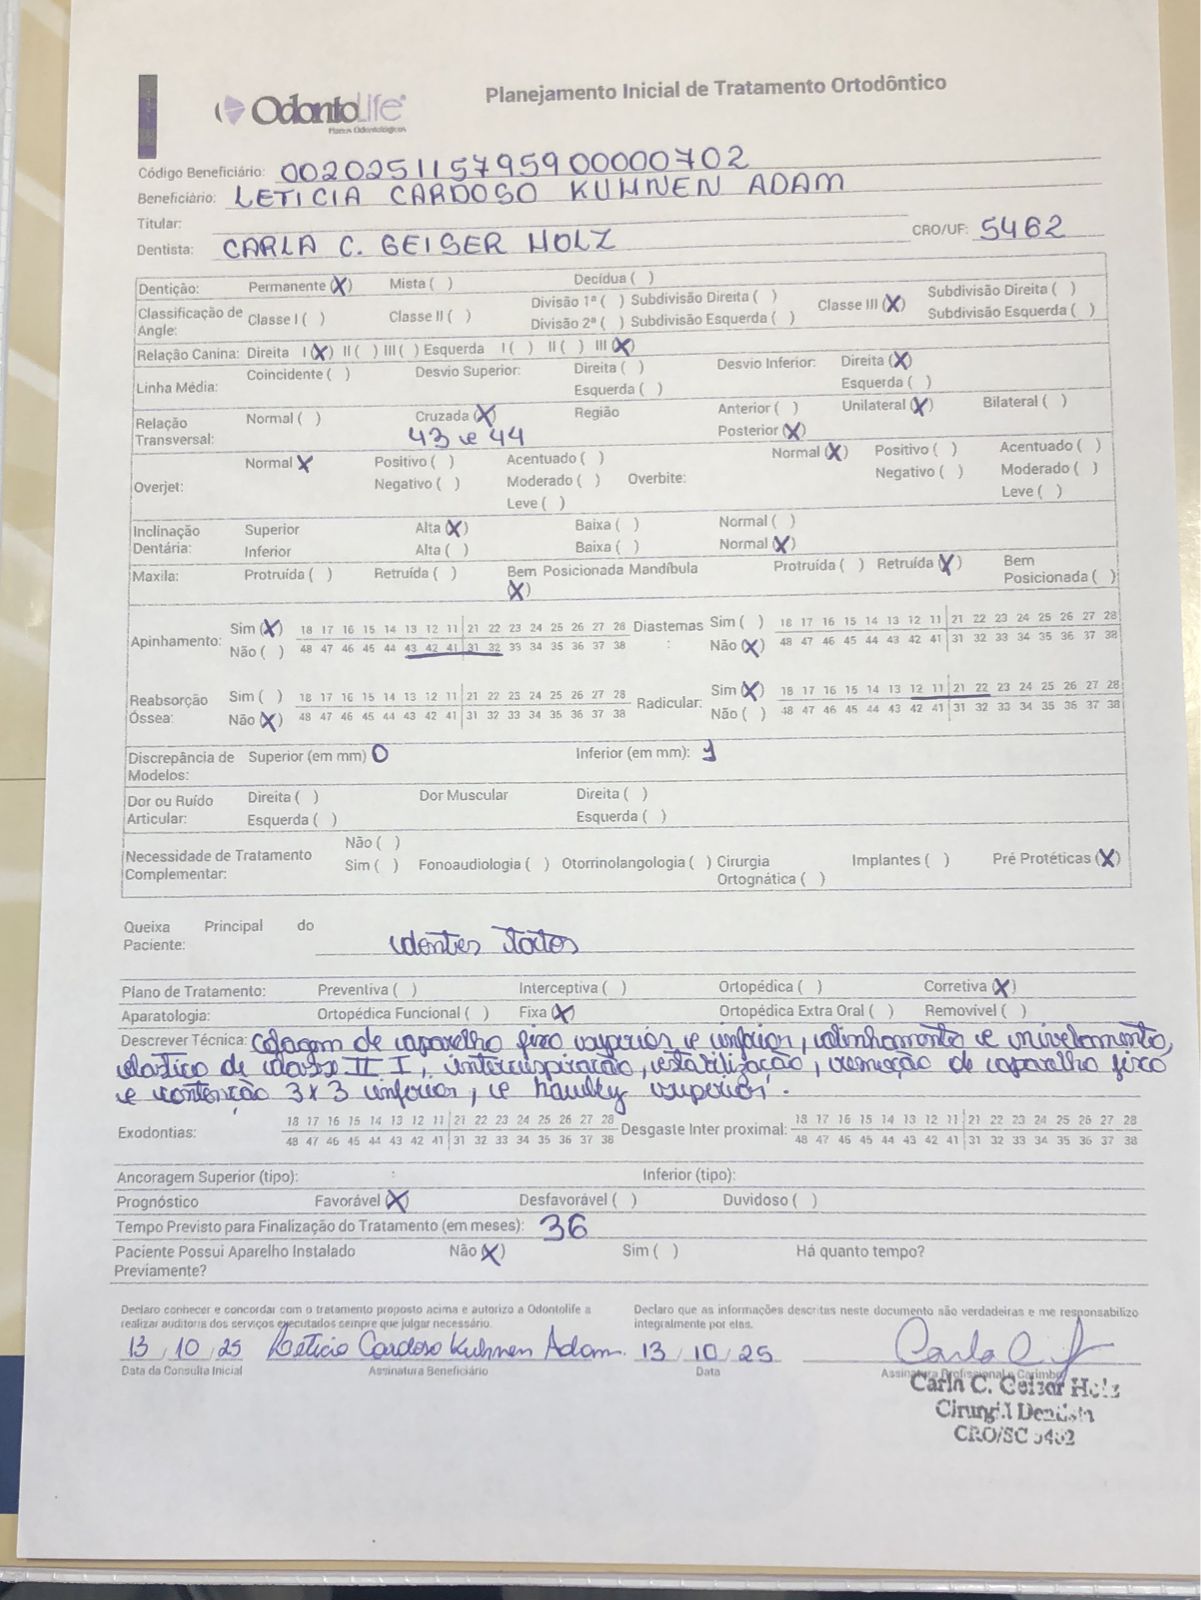 OdontoLife
Planos Odontológicos
Planejamento Inicial de Tratamento Ortodôntico
Código Beneficiário: 00202511579590000702
Beneficiário: LETICIA CARDOSO KUHNEN ADAM
Titular:
Dentista: CARLA C. GEISER HOLZ CRO/UF: 5462
Dentição: Permanente (X) Mista ( ) Decídua ( )
Classificação de Angle: Classe I ( ) Classe II ( ) Divisão 1ª ( ) Subdivisão Direita ( ) Classe III (X) Subdivisão Direita ( )
Divisão 2ª ( ) Subdivisão Esquerda ( ) Subdivisão Esquerda ( )
Relação Canina: Direita I (X) II ( ) III ( ) Esquerda I ( ) II ( ) III (X)
Linha Média: Coincidente ( ) Desvio Superior: Direita ( ) Desvio Inferior: Direita (X)
Esquerda ( ) Esquerda ( )
Relação Transversal: Normal ( ) Cruzada (X) Região Anterior ( ) Unilateral (X) Bilateral ( )
43 e 44 Posterior (X)
Overjet: Normal X Positivo ( ) Acentuado ( ) Overbite: Normal (X) Positivo ( ) Acentuado ( )
Negativo ( ) Moderado ( ) Negativo ( ) Moderado ( )
Leve ( ) Leve ( )
Inclinação Dentária: Superior Alta (X) Baixa ( ) Normal ( )
Inferior Alta ( ) Baixa ( ) Normal (X)
Maxila: Protruída ( ) Retruída ( ) Bem Posicionada (X) Mandíbula Protruída ( ) Retruída (X) Bem Posicionada ( )
Apinhamento: Sim (X) 18 17 16 15 14 13 12 11 21 22 23 24 25 26 27 28 Diastemas: Sim ( ) 18 17 16 15 14 13 12 11 21 22 23 24 25 26 27 28
Não ( ) 48 47 46 45 44 43 42 41 31 32 33 34 35 36 37 38 Não (X) 48 47 46 45 44 43 42 41 31 32 33 34 35 36 37 38
Reabsorção Óssea: Sim ( ) 18 17 16 15 14 13 12 11 21 22 23 24 25 26 27 28 Radicular: Sim (X) 18 17 16 15 14 13 12 11 21 22 23 24 25 26 27 28
Não (X) 48 47 46 45 44 43 42 41 31 32 33 34 35 36 37 38 Não ( ) 48 47 46 45 44 43 42 41 31 32 33 34 35 36 37 38
Discrepância de Modelos: Superior (em mm) 0 Inferior (em mm): 1
Dor ou Ruído Articular: Direita ( ) Dor Muscular Direita ( )
Esquerda ( ) Esquerda ( )
Necessidade de Tratamento Complementar: Não ( )
Sim ( ) Fonoaudiologia ( ) Otorrinolangologia ( ) Cirurgia Ortognática ( ) Implantes ( ) Pré Protéticas (X)
Queixa Principal do Paciente: dentes tortos
Plano de Tratamento: Preventiva ( ) Interceptiva ( ) Ortopédica ( ) Corretiva (X)
Aparatologia: Ortopédica Funcional ( ) Fixa (X) Ortopédica Extra Oral ( ) Removível ( )
Descrever Técnica: colagem de aparelho fixo superior e inferior, alinhamento e nivelamento,
elastico de classe II I, intercuspiração, estabilização, remoção de aparelho fixo
e contenção 3x3 inferior, e hawley superior.
Exodontias: 18 17 16 15 14 13 12 11 21 22 23 24 25 26 27 28 Desgaste Inter proximal: 18 17 16 15 14 13 12 11 21 22 23 24 25 26 27 28
48 47 46 45 44 43 42 41 31 32 33 34 35 36 37 38 48 47 46 45 44 43 42 41 31 32 33 34 35 36 37 38
Ancoragem Superior (tipo): Inferior (tipo):
Prognóstico Favorável (X) Desfavorável ( ) Duvidoso ( )
Tempo Previsto para Finalização do Tratamento (em meses): 36
Paciente Possui Aparelho Instalado Previamente? Não (X) Sim ( ) Há quanto tempo?
Declaro conhecer e concordar com o tratamento proposto acima e autorizo a Odontolife a Declaro que as informações descritas neste documento são verdadeiras e me responsabilizo
realizar auditoria dos serviços executados sempre que julgar necessário. integralmente por elas.
13/10/25 Leticia Cardoso Kuhnen Adam. 13/10/25 Carla C.
Data da Consulta Inicial Assinatura Beneficiário Data Assinatura Profissional e Carimbo
Carla C. Geiser Holz
Cirurgiã Dentista
CRO/SC 5462